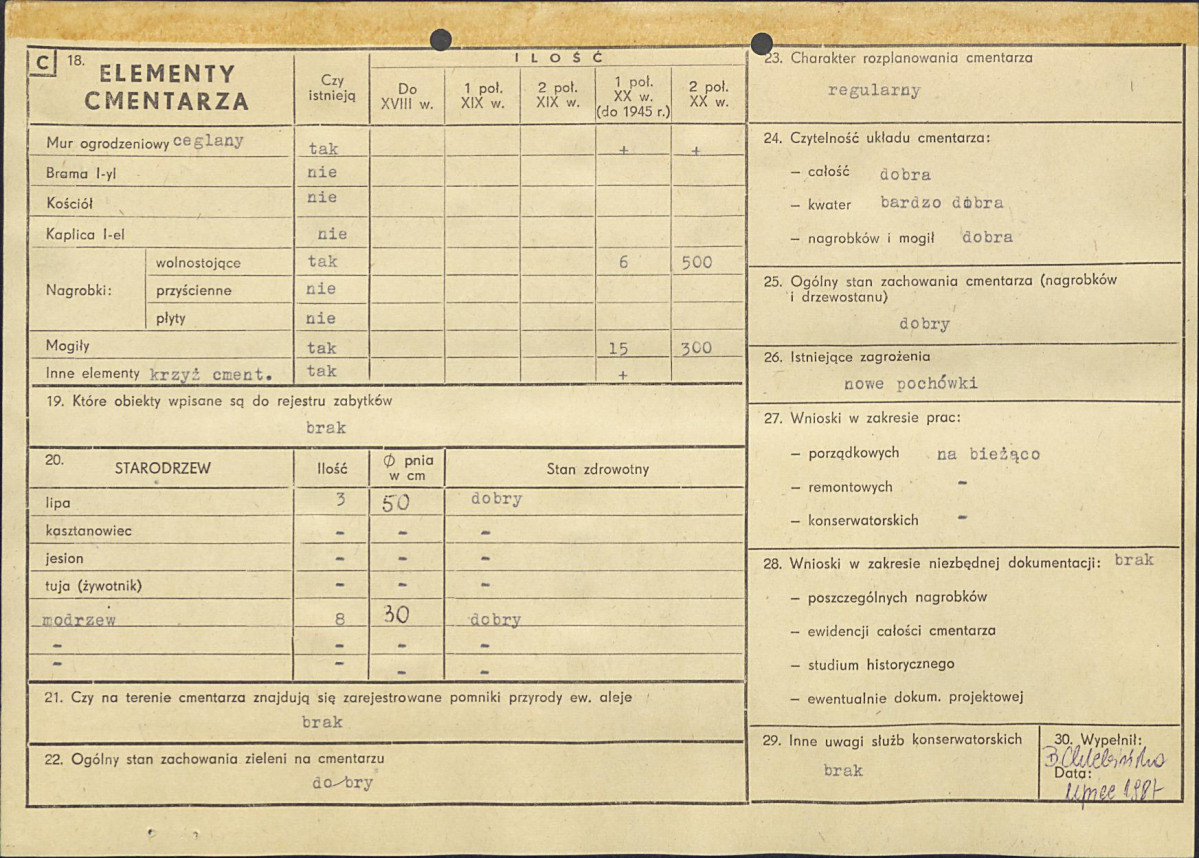 C 18. ELEMENTY CMENTARZA
Czy istnieją
I L O Ś Ć
Do XVIII w.
1 poł. XIX w.
2 poł. XIX w.
1 poł. XX w. (do 1945 r.)
2 poł. XX w.
Mur ogrodzeniowy ceglany tak + +
Brama I-yl nie
Kościół nie
Kaplica I-el nie
Nagrobki:
wolnostojące tak 6 500
przyścienne nie
płyty nie
Mogiły tak 15 300
Inne elementy krzyż cment. tak +
19. Które obiekty wpisane są do rejestru zabytków
brak
20. STARODRZEW Ilość Ø pnia w cm Stan zdrowotny
lipa 3 50 dobry
kasztanowiec - - -
jesion - - -
tuja (żywotnik) - - -
modrzew 8 30 dobry
- - - -
- - - -
21. Czy na terenie cmentarza znajdują się zarejestrowane pomniki przyrody ew. aleje
brak
22. Ogólny stan zachowania zieleni na cmentarzu
dobry
23. Charakter rozplanowania cmentarza
regularny
24. Czytelność układu cmentarza:
— całość dobra
— kwater bardzo dobra
— nagrobków i mogił dobra
25. Ogólny stan zachowania cmentarza (nagrobków
i drzewostanu)
dobry
26. Istniejące zagrożenia
nowe pochówki
27. Wnioski w zakresie prac:
— porządkowych na bieżąco
— remontowych -
— konserwatorskich -
28. Wnioski w zakresie niezbędnej dokumentacji: brak
— poszczególnych nagrobków
— ewidencji całości cmentarza
— studium historycznego
— ewentualnie dokum. projektowej
29. Inne uwagi służb konserwatorskich
brak
30. Wypełnił:
Data:
lipiec 1987